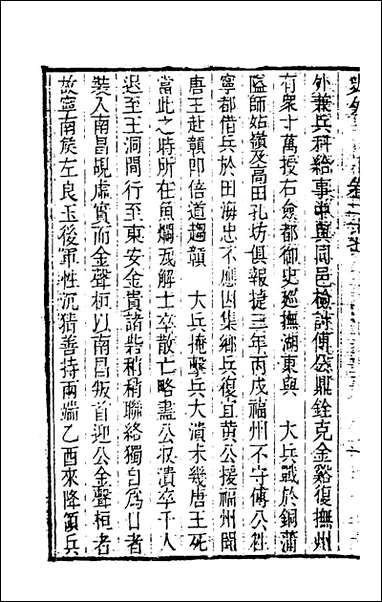 外兼兵科給事中與同邑檢討傅公鼎銓克金谿復撫州
有衆十萬授右僉都御史廵撫湖東與　大兵戰於銅蒲
隘師姑嶺及高田孔坊俱報捷三年丙戌福州不守傅公往
寧都借兵於田海忠不應因集鄉兵復宜黄公援福州聞
唐王赴贛卽倍道趨贛　大兵掩擊兵大潰未幾唐王死
當此之時所在魚爛瓦解士卒散亡略盡公収潰卒千人
退至王洞間行至東安金貴諸砦稍稍聯絡獨自爲日者
裝入南昌覘虛實而金聲桓以南昌叛首迎公金聲桓者
故寧南侯左良玉後軍性沉猜善持兩端乙酉來降領兵